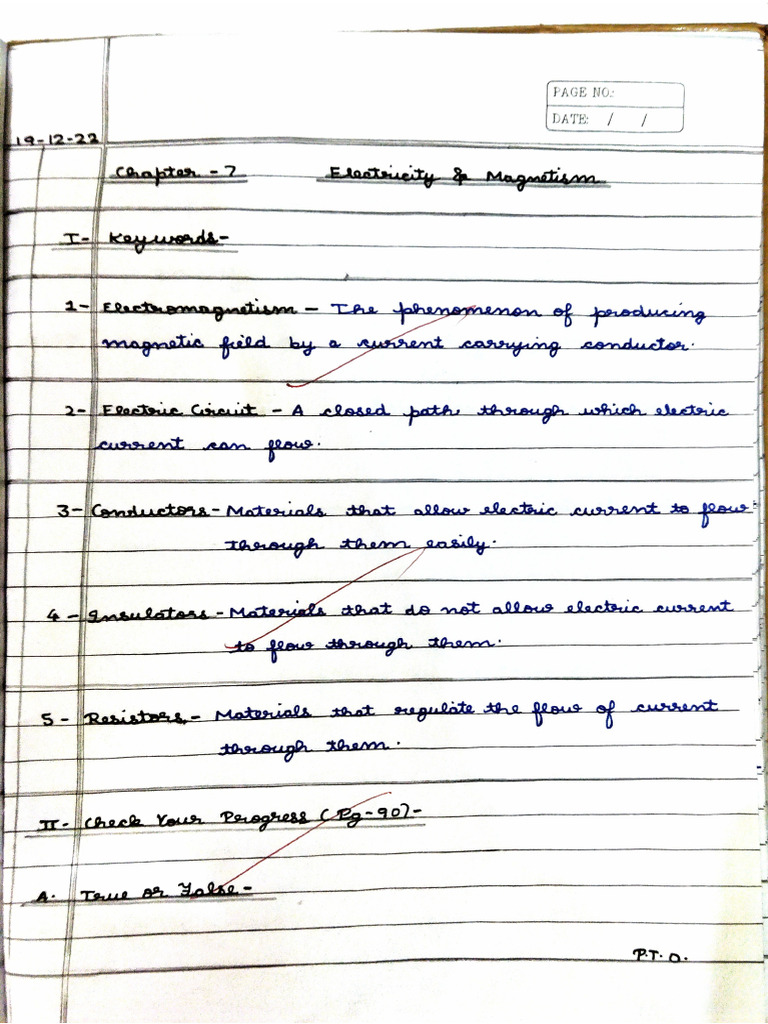 PAGE NO.:
DATE: / /
19-12-22
Chapter - 7 Electricity & Magnetism
I- Keywords-
1- Electromagnetism - The phenomenon of producing
magnetic field by a current carrying conductor.
2- Electric Circuit - A closed path through which electric
current can flow.
3- Conductors - Materials that allow electric current to flow
through them easily.
4- Insulators - Materials that do not allow electric current
to flow through them.
5- Resistors - Materials that regulate the flow of current
through them.
II- Check Your Progress (Pg-90)-
A. True or False-
P.T.O.